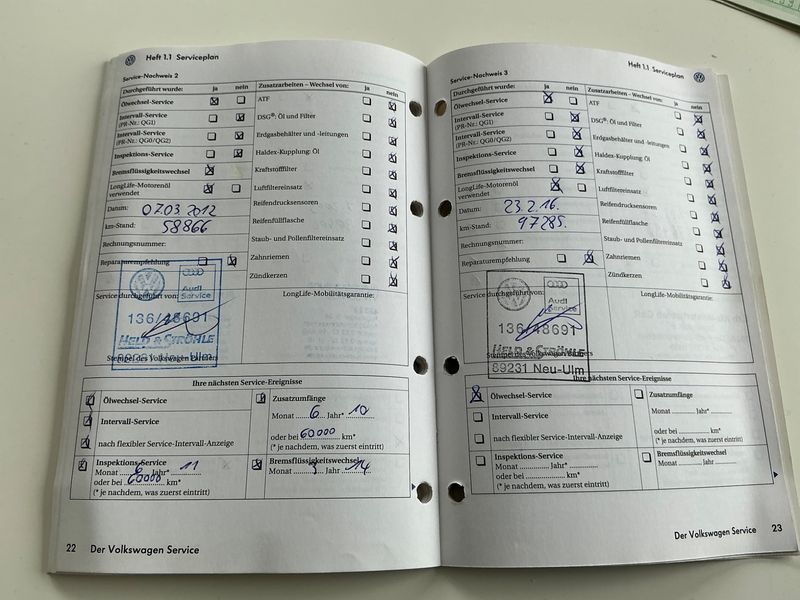 Heft 1.1 Serviceplan
Service-Nachweis 2
Durchgeführt wurde: ja nein
Ölwechsel-Service
Intervall-Service
(PR-Nr.: QG1)
Intervall-Service
(PR-Nr.: QG0/QG2)
Inspektions-Service
Bremsflüssigkeitswechsel
LongLife-Motorenöl
verwendet
Datum: 07.03 2012
km-Stand: 58866
Rechnungsnummer:
Reparaturempfehlung
Zusatzarbeiten – Wechsel von: ja nein
ATF
DSG®: Öl und Filter
Erdgasbehälter und -leitungen
Haldex-Kupplung: Öl
Kraftstofffilter
Luftfiltereinsatz
Reifendrucksensoren
Reifenfüllflasche
Staub- und Pollenfiltereinsatz
Zahnriemen
Zündkerzen
Service durchgeführt von:
Audi
Service
136/48691
HELD & STRÖHLE
Stempel des Volkswagen Partners
LongLife-Mobilitätsgarantie:
Ihre nächsten Service-Ereignisse
Ölwechsel-Service
Intervall-Service
nach flexibler Service-Intervall-Anzeige
Zusatzumfänge
Monat 6 Jahr* 10
oder bei 60000 km*
(* je nachdem, was zuerst eintritt)
Inspektions-Service
Monat 6 Jahr* 11
oder bei 60000 km*
(* je nachdem, was zuerst eintritt)
Bremsflüssigkeitswechsel
Monat 3 Jahr 14
22 Der Volkswagen Service
Heft 1.1 Serviceplan
Service-Nachweis 3
Durchgeführt wurde: ja nein
Ölwechsel-Service
Intervall-Service
(PR-Nr.: QG1)
Intervall-Service
(PR-Nr.: QG0/QG2)
Inspektions-Service
Bremsflüssigkeitswechsel
LongLife-Motorenöl
verwendet
Datum: 23.2.16.
km-Stand: 97285.
Rechnungsnummer:
Reparaturempfehlung
Zusatzarbeiten – Wechsel von: ja nein
ATF
DSG®: Öl und Filter
Erdgasbehälter und -leitungen
Haldex-Kupplung: Öl
Kraftstofffilter
Luftfiltereinsatz
Reifendrucksensoren
Reifenfüllflasche
Staub- und Pollenfiltereinsatz
Zahnriemen
Zündkerzen
Service durchgeführt von:
Audi
Service
136/48691
HELD & STRÖHLE
Stempel des Volkswagen Partners
89231 Neu-Ulm
LongLife-Mobilitätsgarantie:
Ihre nächsten Service-Ereignisse
Ölwechsel-Service
Intervall-Service
nach flexibler Service-Intervall-Anzeige
Zusatzumfänge
Monat Jahr*
oder bei km*
(* je nachdem, was zuerst eintritt)
Inspektions-Service
Monat Jahr*
oder bei km*
(* je nachdem, was zuerst eintritt)
Bremsflüssigkeitswechsel
Monat Jahr
Der Volkswagen Service 23